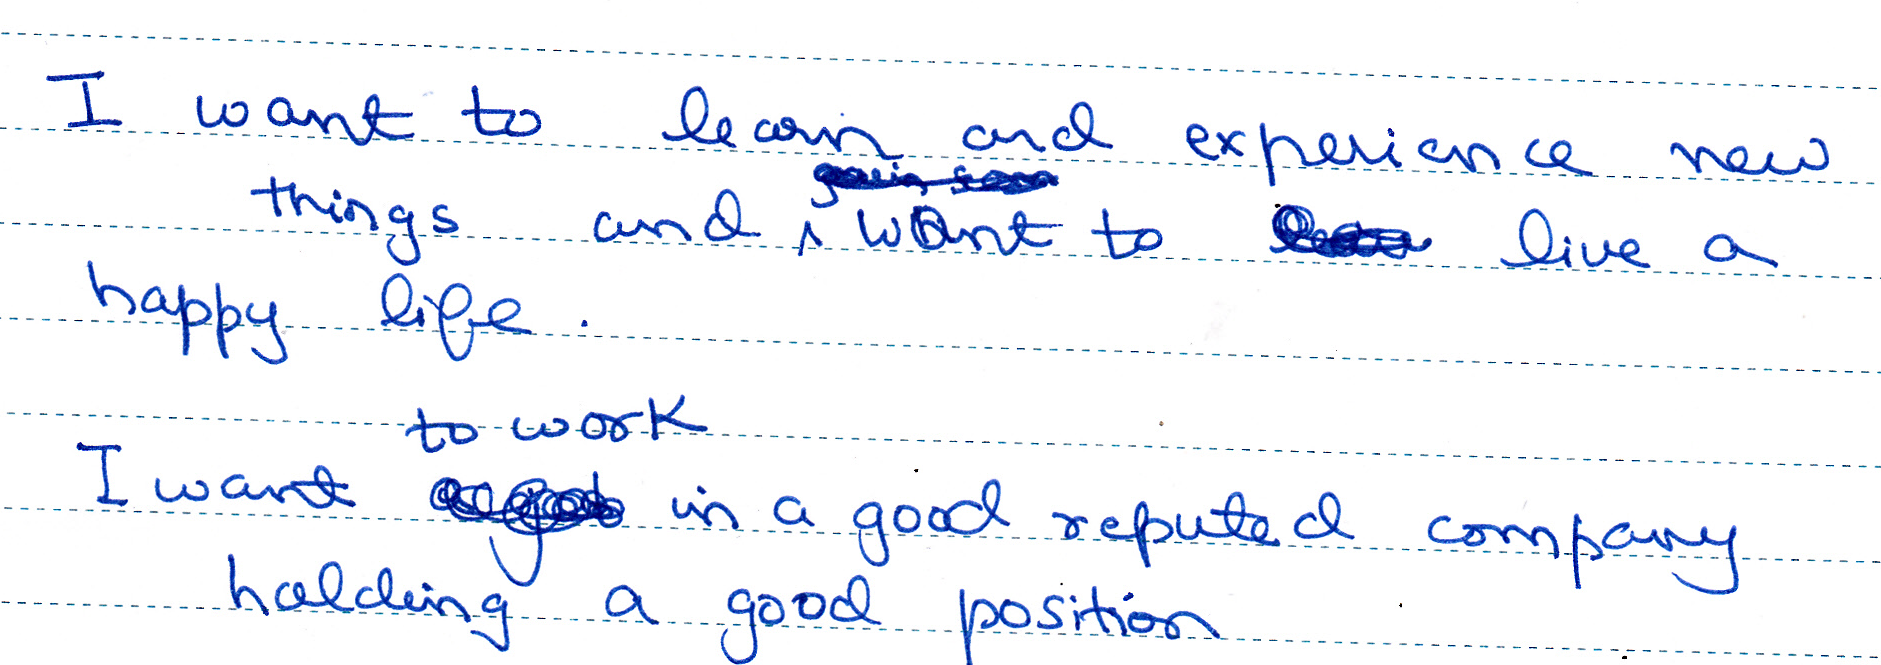 I want to learn and experience new
things and want to live a
happy life.
to work
I want in a good reputed company
holding a good position